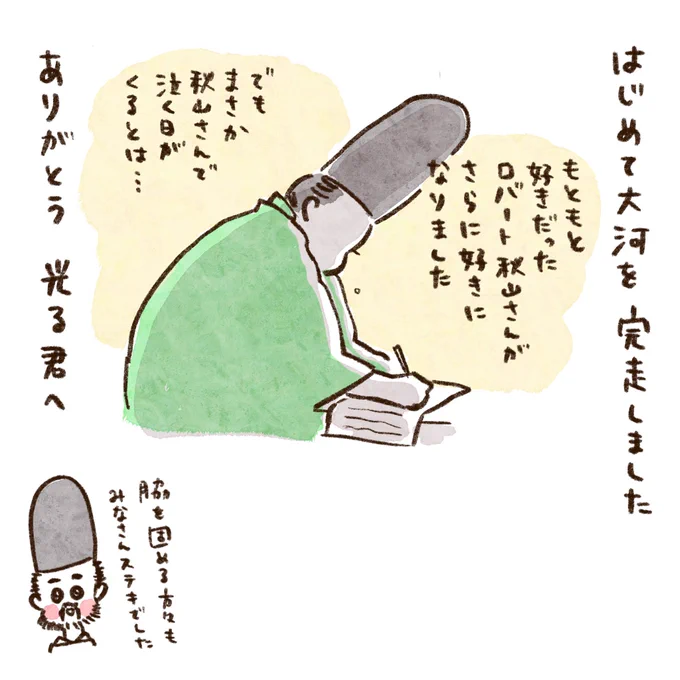 はじめて大河を完走しました
もともと
好きだった
ロバート秋山さんが
さらに好きに
なりました
でも
まさか
秋山さんで
泣く日が
くるとは…
ありがとう 光る君へ
脇を固める方々も
みなさんステキでした